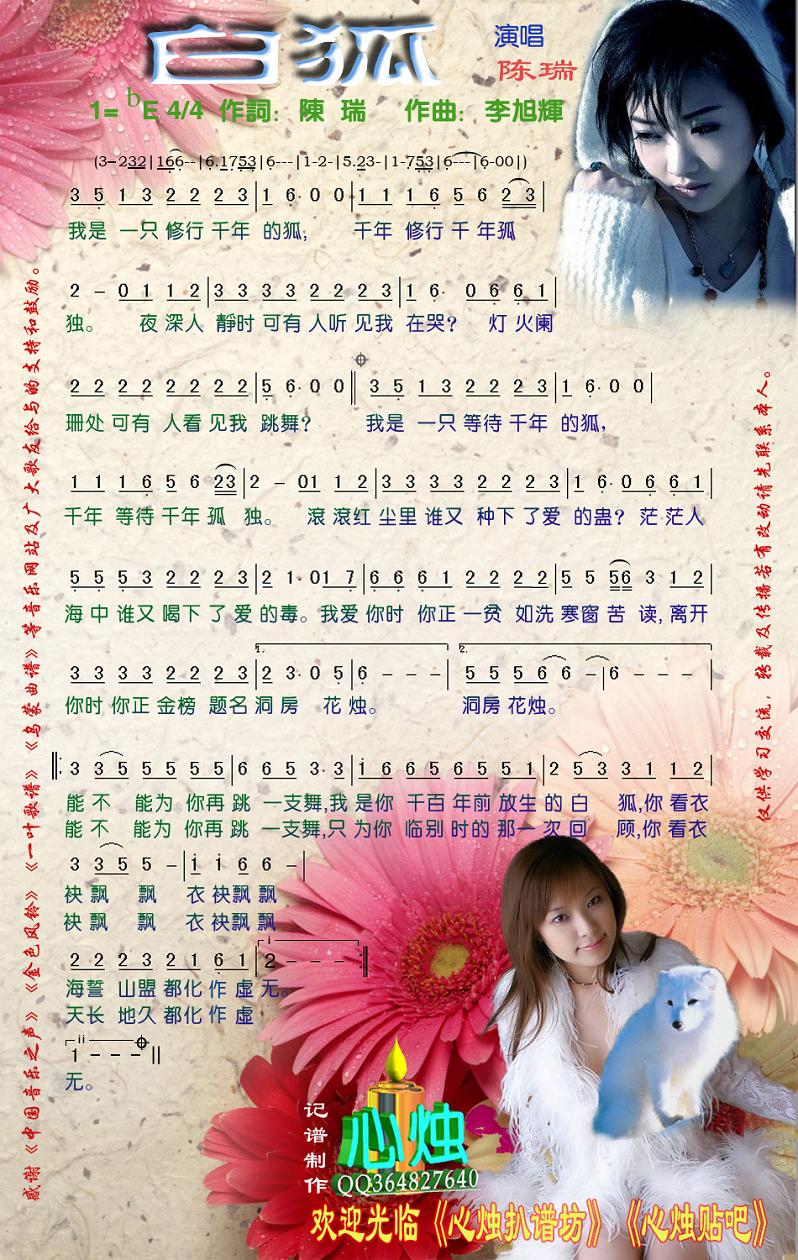 白狐
演唱
陈瑞
1= bE 4/4 作詞：陳 瑞 作曲：李旭輝
(3–232|166--|6.1753|6---|1-2-|5.23-|1-753|6---|6-00|)
3 5 1 3 2 2 2 3|1 6· 0 0|1 1 1 6 5 6 2 3|
我是 一只 修行 千年 的狐, 千年 修行 千 年孤
2 – 0 1 1 2|3 3 3 3 2 2 2 3|1 6· 0 6 6 1|
独。 夜 深人 靜时 可有 人听 见我 在哭? 灯 火阑
2 2 2 2 2 2 2 2|5 6· 0 0‖3 5 1 3 2 2 2 3|1 6· 0 0|
珊处 可有 人看 见我 跳舞? 我是 一只 等待 千年 的狐,
1 1 1 6 5 6 23|2 – 01 1 2|3 3 3 3 2 2 2 3|1 6· 0 6 6 1|
千年 等待 千年 孤 独。 滚 滚红 尘里 谁又 种下 了爱 的蛊? 茫 茫人
5 5 5 3 2 2 2 3|2 1· 01 7|6 6 6 1 2 2 2 2|5 5 56 3 1 2|
海 中 谁又 喝下 了 爱 的毒。我爱 你时 你正 一贫 如洗 寒窗 苦 读, 离开
3 3 3 3 2 2 2 3|1. 2 3· 0 5|6 – – –|2. 5 5 5 6 6 –|6 – – –|
你时 你正 金榜 题名 洞 房 花 烛。 洞房 花烛。
‖: 3 3 5 5 5 5 5|6 6 5 3· 3|i 6 6 5 6 5 5 1|2 5 3 3 1 1 2|
能 不 能为 你再 跳 一支舞,我 是你 千百 年前 放生 的 白 狐,你 看衣
能 不 能为 你再 跳 一支舞,只 为你 临别 时的 那一 次 回 顾,你 看衣
3 3 5 5 –|i i 6 6 –|
袂 飘 飘 衣 袂飘 飘
袂 飘 飘 衣 袂飘 飘
2 2 2 3 2 1 6 1|i 2 – – – :‖
海誓 山盟 都化 作 虚 无。
天长 地久 都化 作 虚
ii 1 – – – ‖
无。
感谢《中国音乐之声》《金色风铃》《一叶歌谱》《乌蒙曲谱》等音乐网站及广大歌友给与的支持和鼓励。
仅供学习交流，转载及传播若有改动请先联系本人。
记谱制作
心烛
QQ364827640
欢迎光临《心烛扒谱坊》《心烛贴吧》